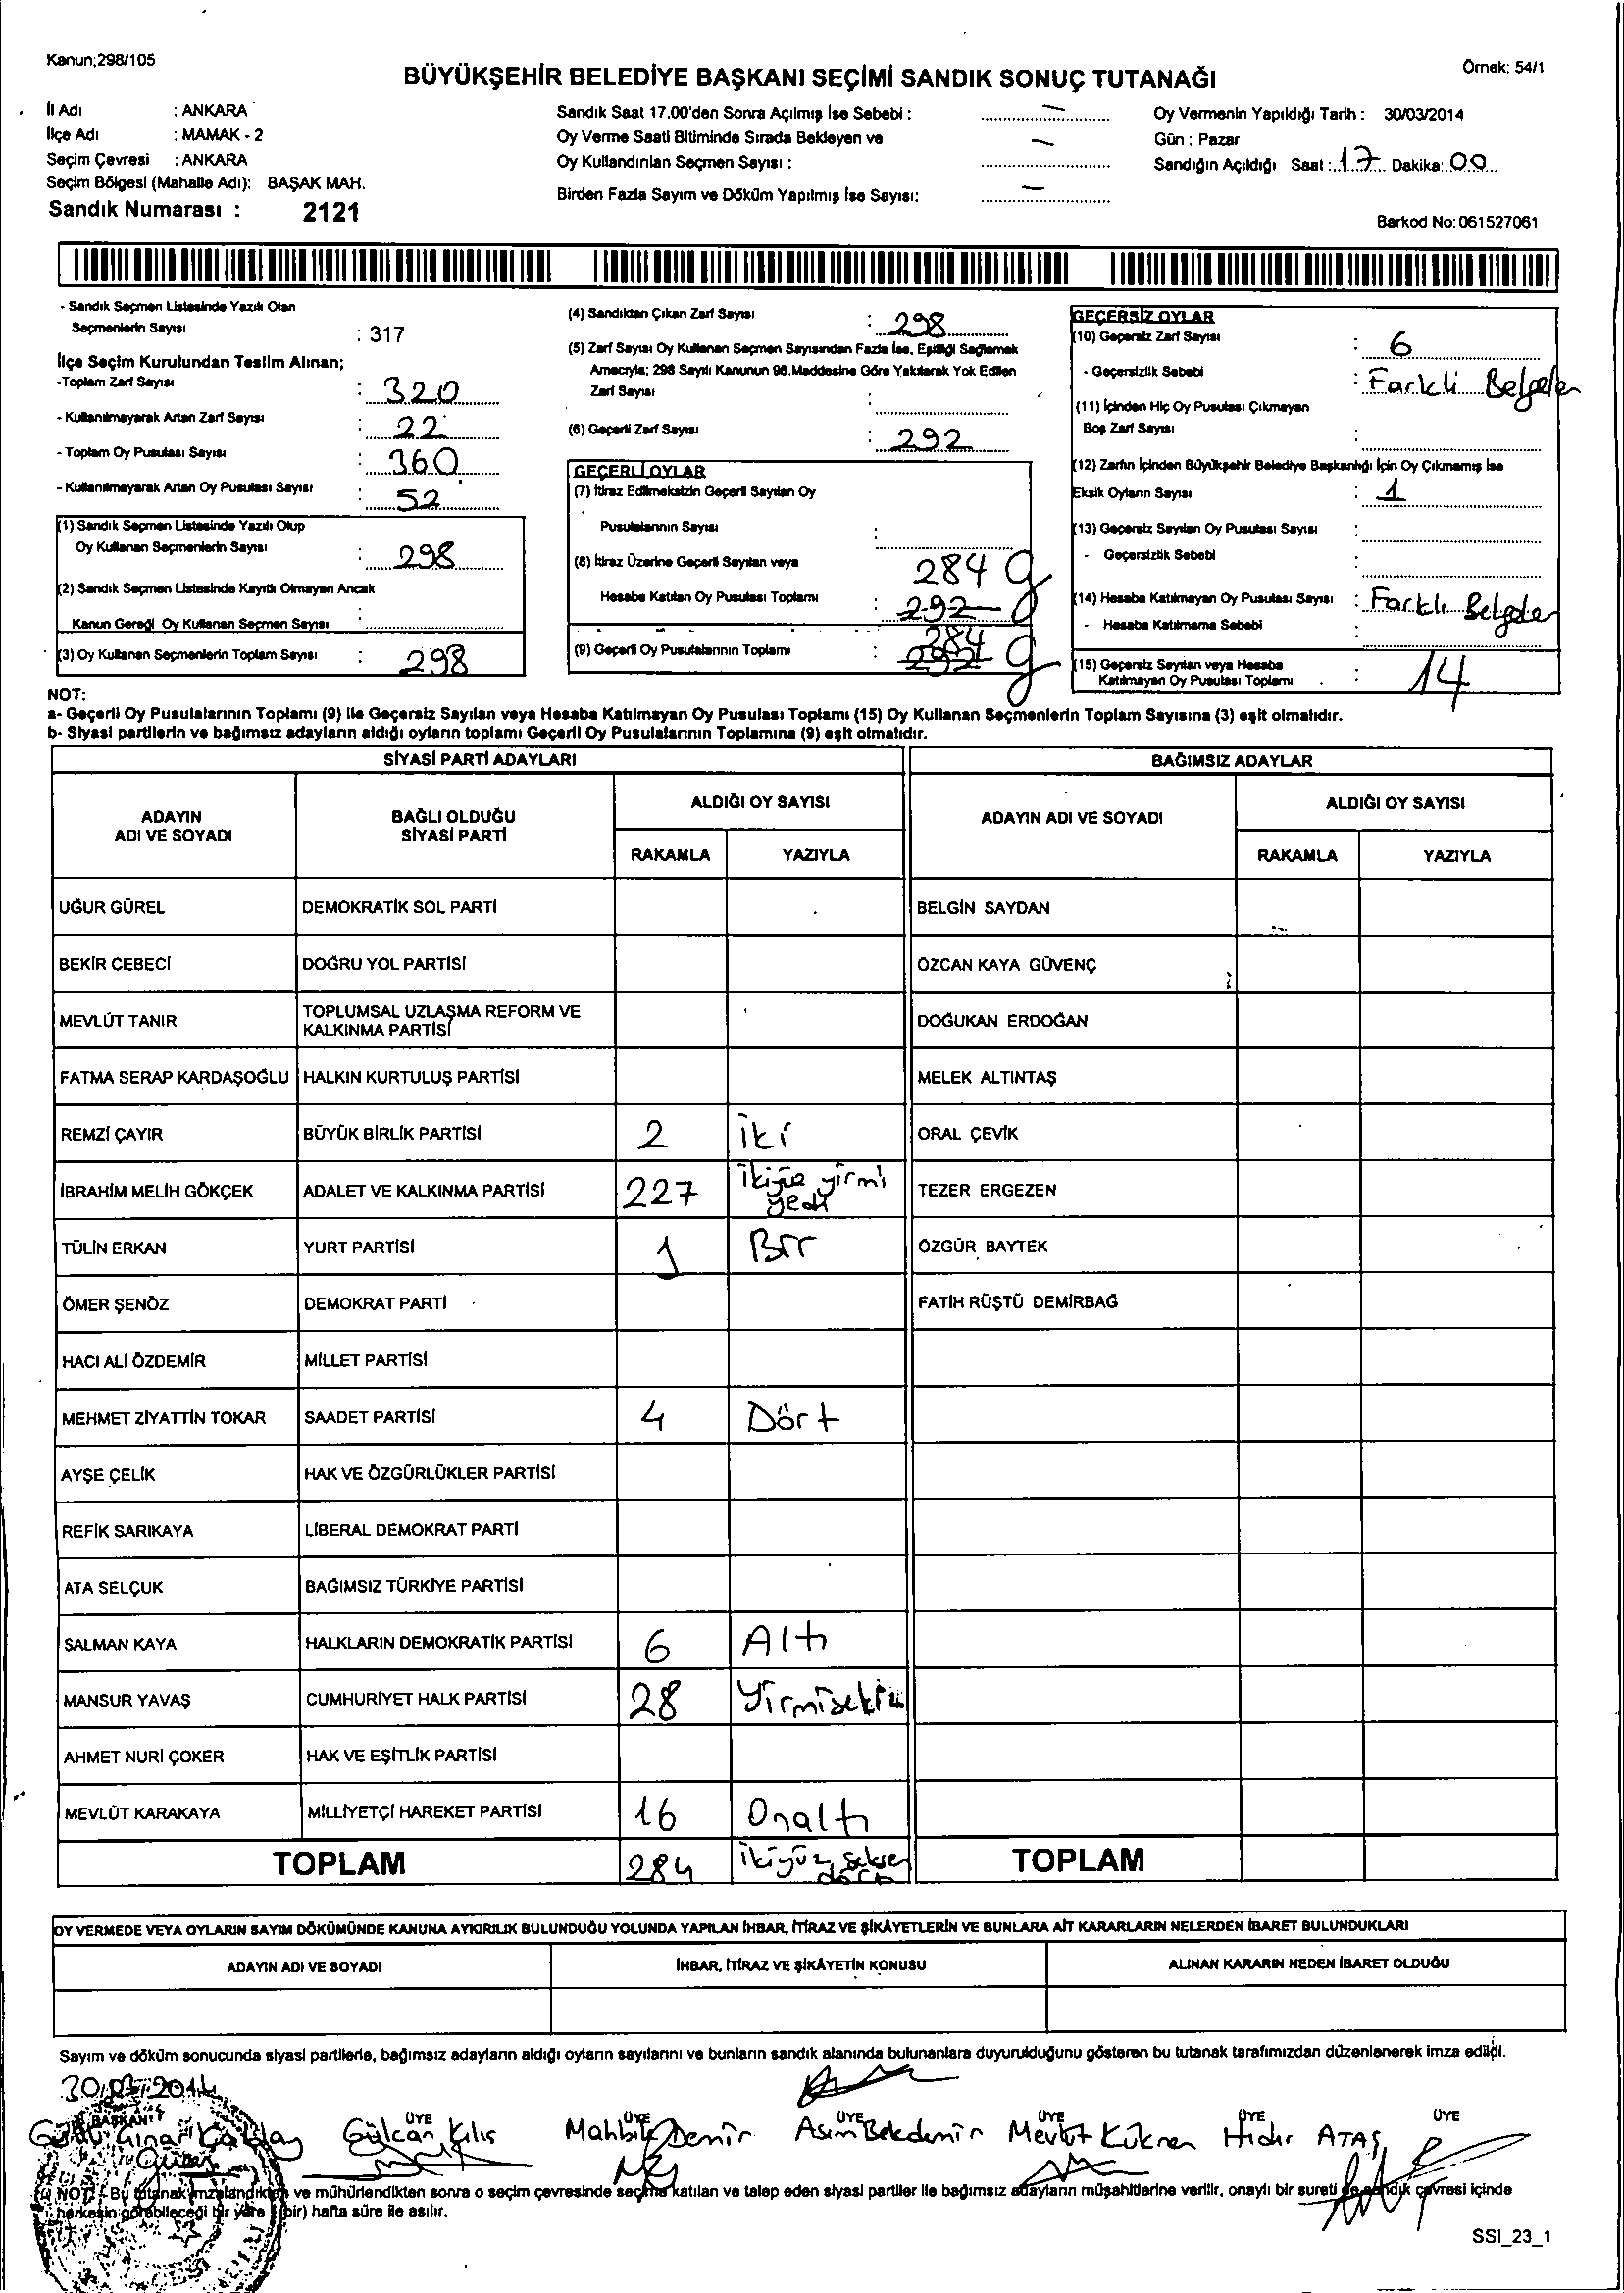 Kanun;298/105
Örnek: 54/1
BÜYÜKŞEHİR BELEDİYE BAŞKANI SEÇİMİ SANDIK SONUÇ TUTANAĞI
İl Adı : ANKARA
İlçe Adı : MAMAK - 2
Seçim Çevresi : ANKARA
Seçim Bölgesi (Mahalle Adı): BAŞAK MAH.
Sandık Numarası : 2121
Sandık Saat 17.00'den Sonra Açılmış İse Sebebi : —
Oy Verme Saati Bitiminde Sırada Bekleyen ve
Oy Kullandırılan Seçmen Sayısı : —
Birden Fazla Sayım ve Döküm Yapılmış İse Sayısı: —
Oy Vermenin Yapıldığı Tarih : 30/03/2014
Gün : Pazar
Sandığın Açıldığı Saat : 17 Dakika: 00
Barkod No: 061527061
- Sandık Seçmen Listesinde Yazılı Olan
Seçmenlerin Sayısı : 317
İlçe Seçim Kurulundan Teslim Alınan;
-Toplam Zarf Sayısı : 320
- Kullanılmayarak Artan Zarf Sayısı : 22
- Toplam Oy Pusulası Sayısı : 360
- Kullanılmayarak Artan Oy Pusulası Sayısı : 52
(1) Sandık Seçmen Listesinde Yazılı Olup
Oy Kullanan Seçmenlerin Sayısı : 298
(2) Sandık Seçmen Listesinde Kayıtlı Olmayan Ancak
Kanun Gereği Oy Kullanan Seçmen Sayısı :
(3) Oy Kullanan Seçmenlerin Toplam Sayısı : 298
(4) Sandıktan Çıkan Zarf Sayısı : 298
(5) Zarf Sayısı Oy Kullanan Seçmen Sayısından Fazla İse, Eşitliği Sağlamak
Amacıyla; 298 Sayılı Kanunun 98.Maddesine Göre Yakılarak Yok Edilen
Zarf Sayısı :
(6) Geçerli Zarf Sayısı : 292
GEÇERLİ OYLAR
(7) İtiraz Edilmeksizin Geçerli Sayılan Oy
Pusulalarının Sayısı :
(8) İtiraz Üzerine Geçerli Sayılan veya 284
Hesaba Katılan Oy Pusulası Toplamı : 292
(9) Geçerli Oy Pusulalarının Toplamı : 284 292
GEÇERSİZ OYLAR
(10) Geçersiz Zarf Sayısı : 6
- Geçersizlik Sebebi : Farklı Belgeler
(11) İçinden Hiç Oy Pusulası Çıkmayan
Boş Zarf Sayısı :
(12) Zarfın İçinden Büyükşehir Belediye Başkanlığı İçin Oy Çıkmamış İse
Eksik Oyların Sayısı : 1
(13) Geçersiz Sayılan Oy Pusulası Sayısı :
- Geçersizlik Sebebi :
(14) Hesaba Katılmayan Oy Pusulası Sayısı : Farklı Belgeler
- Hesaba Katılmama Sebebi :
(15) Geçersiz Sayılan veya Hesaba
Katılmayan Oy Pusulası Toplamı : 14
NOT:
a- Geçerli Oy Pusulalarının Toplamı (9) ile Geçersiz Sayılan veya Hesaba Katılmayan Oy Pusulası Toplamı (15) Oy Kullanan Seçmenlerin Toplam Sayısına (3) eşit olmalıdır.
b- Siyasi partilerin ve bağımsız adayların aldığı oyların toplamı Geçerli Oy Pusulalarının Toplamına (9) eşit olmalıdır.
SİYASİ PARTİ ADAYLARI BAĞIMSIZ ADAYLAR
ADAYIN ADI VE SOYADI BAĞLI OLDUĞU SİYASİ PARTİ ALDIĞI OY SAYISI ADAYIN ADI VE SOYADI ALDIĞI OY SAYISI
RAKAMLA YAZIYLA RAKAMLA YAZIYLA
UĞUR GÜREL DEMOKRATİK SOL PARTİ BELGİN SAYDAN
BEKİR CEBECİ DOĞRU YOL PARTİSİ ÖZCAN KAYA GÜVENÇ
MEVLÜT TANIR TOPLUMSAL UZLAŞMA REFORM VE KALKINMA PARTİSİ DOĞUKAN ERDOĞAN
FATMA SERAP KARDAŞOĞLU HALKIN KURTULUŞ PARTİSİ MELEK ALTINTAŞ
REMZİ ÇAYIR BÜYÜK BİRLİK PARTİSİ 2 iki ORAL ÇEVİK
İBRAHİM MELİH GÖKÇEK ADALET VE KALKINMA PARTİSİ 227 ikiyüz yirmi yedi TEZER ERGEZEN
TÜLİN ERKAN YURT PARTİSİ 1 Bir ÖZGÜR BAYTEK
ÖMER ŞENÖZ DEMOKRAT PARTİ FATİH RÜŞTÜ DEMİRBAĞ
HACI ALİ ÖZDEMİR MİLLET PARTİSİ
MEHMET ZİYATTİN TOKAR SAADET PARTİSİ 4 Dört
AYŞE ÇELİK HAK VE ÖZGÜRLÜKLER PARTİSİ
REFİK SARIKAYA LİBERAL DEMOKRAT PARTİ
ATA SELÇUK BAĞIMSIZ TÜRKİYE PARTİSİ
SALMAN KAYA HALKLARIN DEMOKRATİK PARTİSİ 6 Altı
MANSUR YAVAŞ CUMHURİYET HALK PARTİSİ 28 Yirmisekiz
AHMET NURİ ÇOKER HAK VE EŞİTLİK PARTİSİ
MEVLÜT KARAKAYA MİLLİYETÇİ HAREKET PARTİSİ 16 Onaltı
TOPLAM 284 ikiyüz seksen dört TOPLAM
OY VERMEDE VEYA OYLARIN SAYIM DÖKÜMÜNDE KANUNA AYKIRILIK BULUNDUĞU YOLUNDA YAPILAN İHBAR, İTİRAZ VE ŞİKÂYETLERİN VE BUNLARA AİT KARARLARIN NELERDEN İBARET BULUNDUKLARI
ADAYIN ADI VE SOYADI İHBAR, İTİRAZ VE ŞİKÂYETİN KONUSU ALINAN KARARIN NEDEN İBARET OLDUĞU
Sayım ve döküm sonucunda siyasi partilerle, bağımsız adayların aldığı oyların sayılarını ve bunların sandık alanında bulunanlara duyurulduğunu gösteren bu tutanak tarafımızdan düzenlenerek imza edildi.
30/03/2014
BAŞKAN ÜYE ÜYE ÜYE ÜYE ÜYE ÜYE
Gülcan Kılıs Demir Asım Mevlüt Hıdır ATAŞ
NOT: -Bu tutanak imzalandıktan ve mühürlendikten sonra o seçim çevresinde seçime katılan ve talep eden siyasi partiler ile bağımsız adayların müşahitlerine verilir, onaylı bir sureti de sandık çevresi içinde
herkesin görebileceği bir yere (bir) hafta süre ile asılır.
SSI_23_1